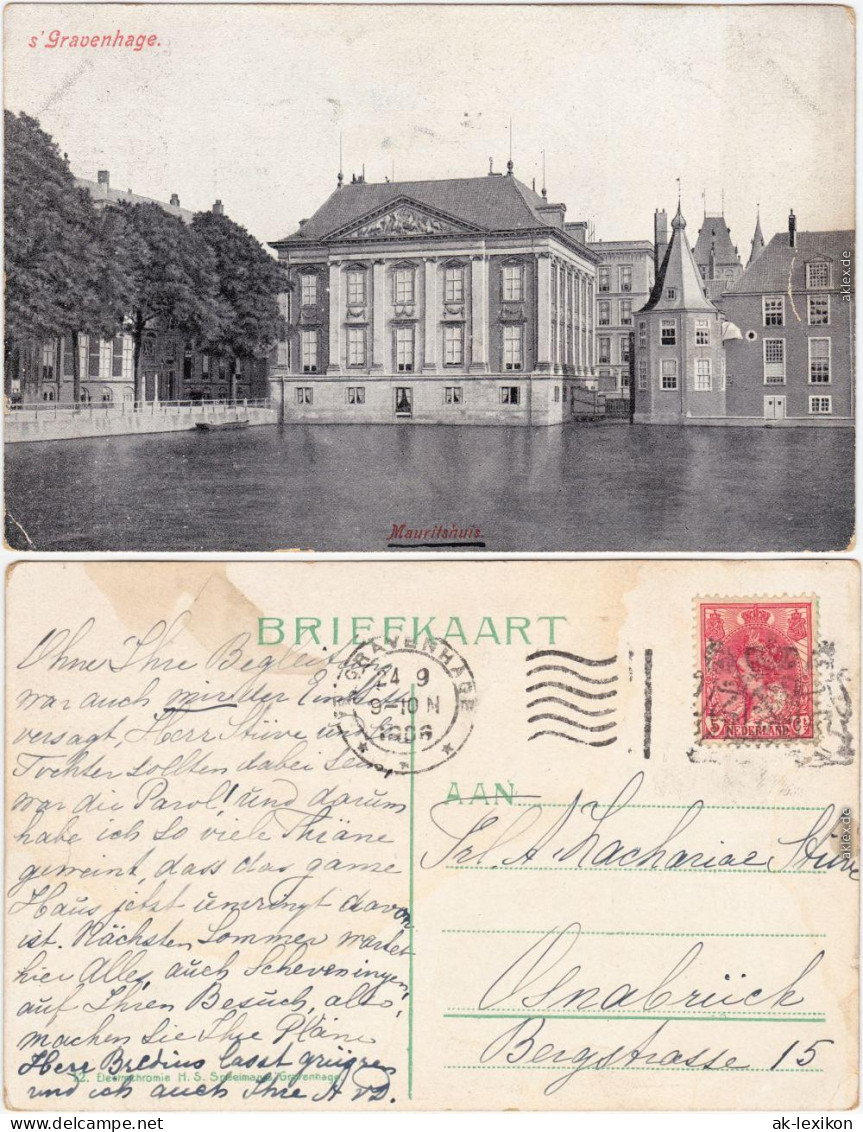 s'Gravenhage.
Mauritshuis.
aklex.de
BRIEFKAART
'S GRAVENHAGE
24 9
9-10 N
1906
5 Ct
NEDERLAND
Ohne Ihre Begleitung
war auch mir der Eintritt
versagt, Herr Stüve und
Tochter sollten dabei sein
war die Parol! und darum
habe ich so viele Thräne
geweint, dass das ganze
Haus jetzt umringt davon
ist. Nächsten Sommer wartet
hier Alles, auch Scheveningen,
auf Ihren Besuch, also,
machen Sie Ihre Pläne
Herr Bredius lasst grüssen
und ich auch Ihre A v D.
AAN
Frl. A. Zachariae Stüve
Osnabrück
Bergstrasse 15
12. Electrochromie H. S. Speelman, s'Gravenhage.
aklex.de
ak-lexikon